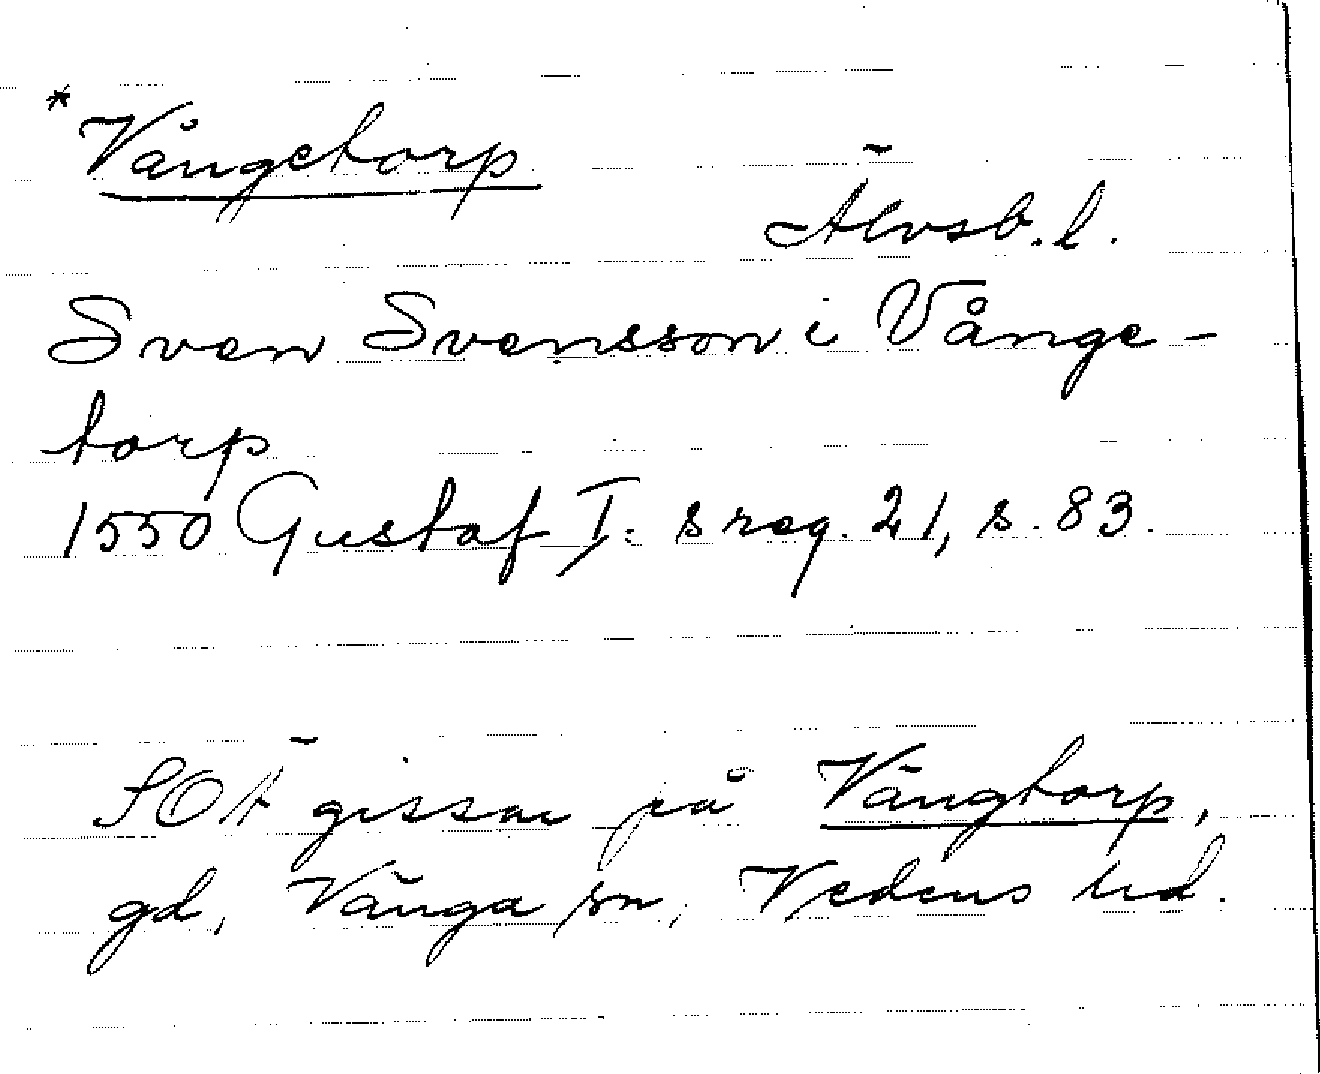 *Vångetorp
Älvsb. l.
Sven Svensson i Vånge-
torp
1550 Gustaf I: s reg. 21, s. 83.
SOÄ gissar på Vängtorp,
gd, Vänga sn, Vedens hd.